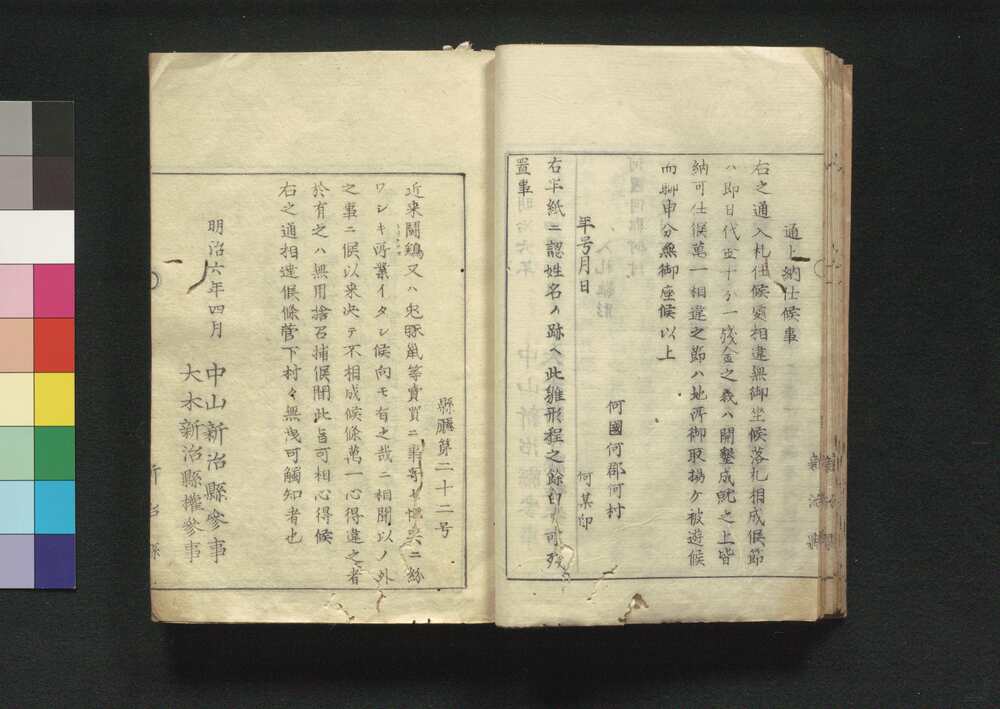 通上納仕候事
右之通入札仕候處相違無御坐候落札相成候節
ハ即日代金十分一残金之義ハ開墾成就之上皆
納可仕候萬一相違之節ハ地所御取揚ケ被遊候
而聊申分無御座候以上
年号月日
何國何郡何村
何某印
右半紙ニ認姓名ノ跡ヘ此雛形程之餘白可残
置事
縣廳第二十二号
近来鬪鶏又ハ兎豚鼠等賣買ニ事寄セ博奕ニ紛
ワシキ所業イタシ候向モ有之哉ニ相聞以ノ外
之事ニ候以来决テ不相成候條萬一心得違之者
於有之ハ無用捨召捕候間此旨可相心得候
右之通相達候條管下村々無洩可觸知者也
明治六年四月
中山新治縣參事
大木新治縣權參事
新治縣